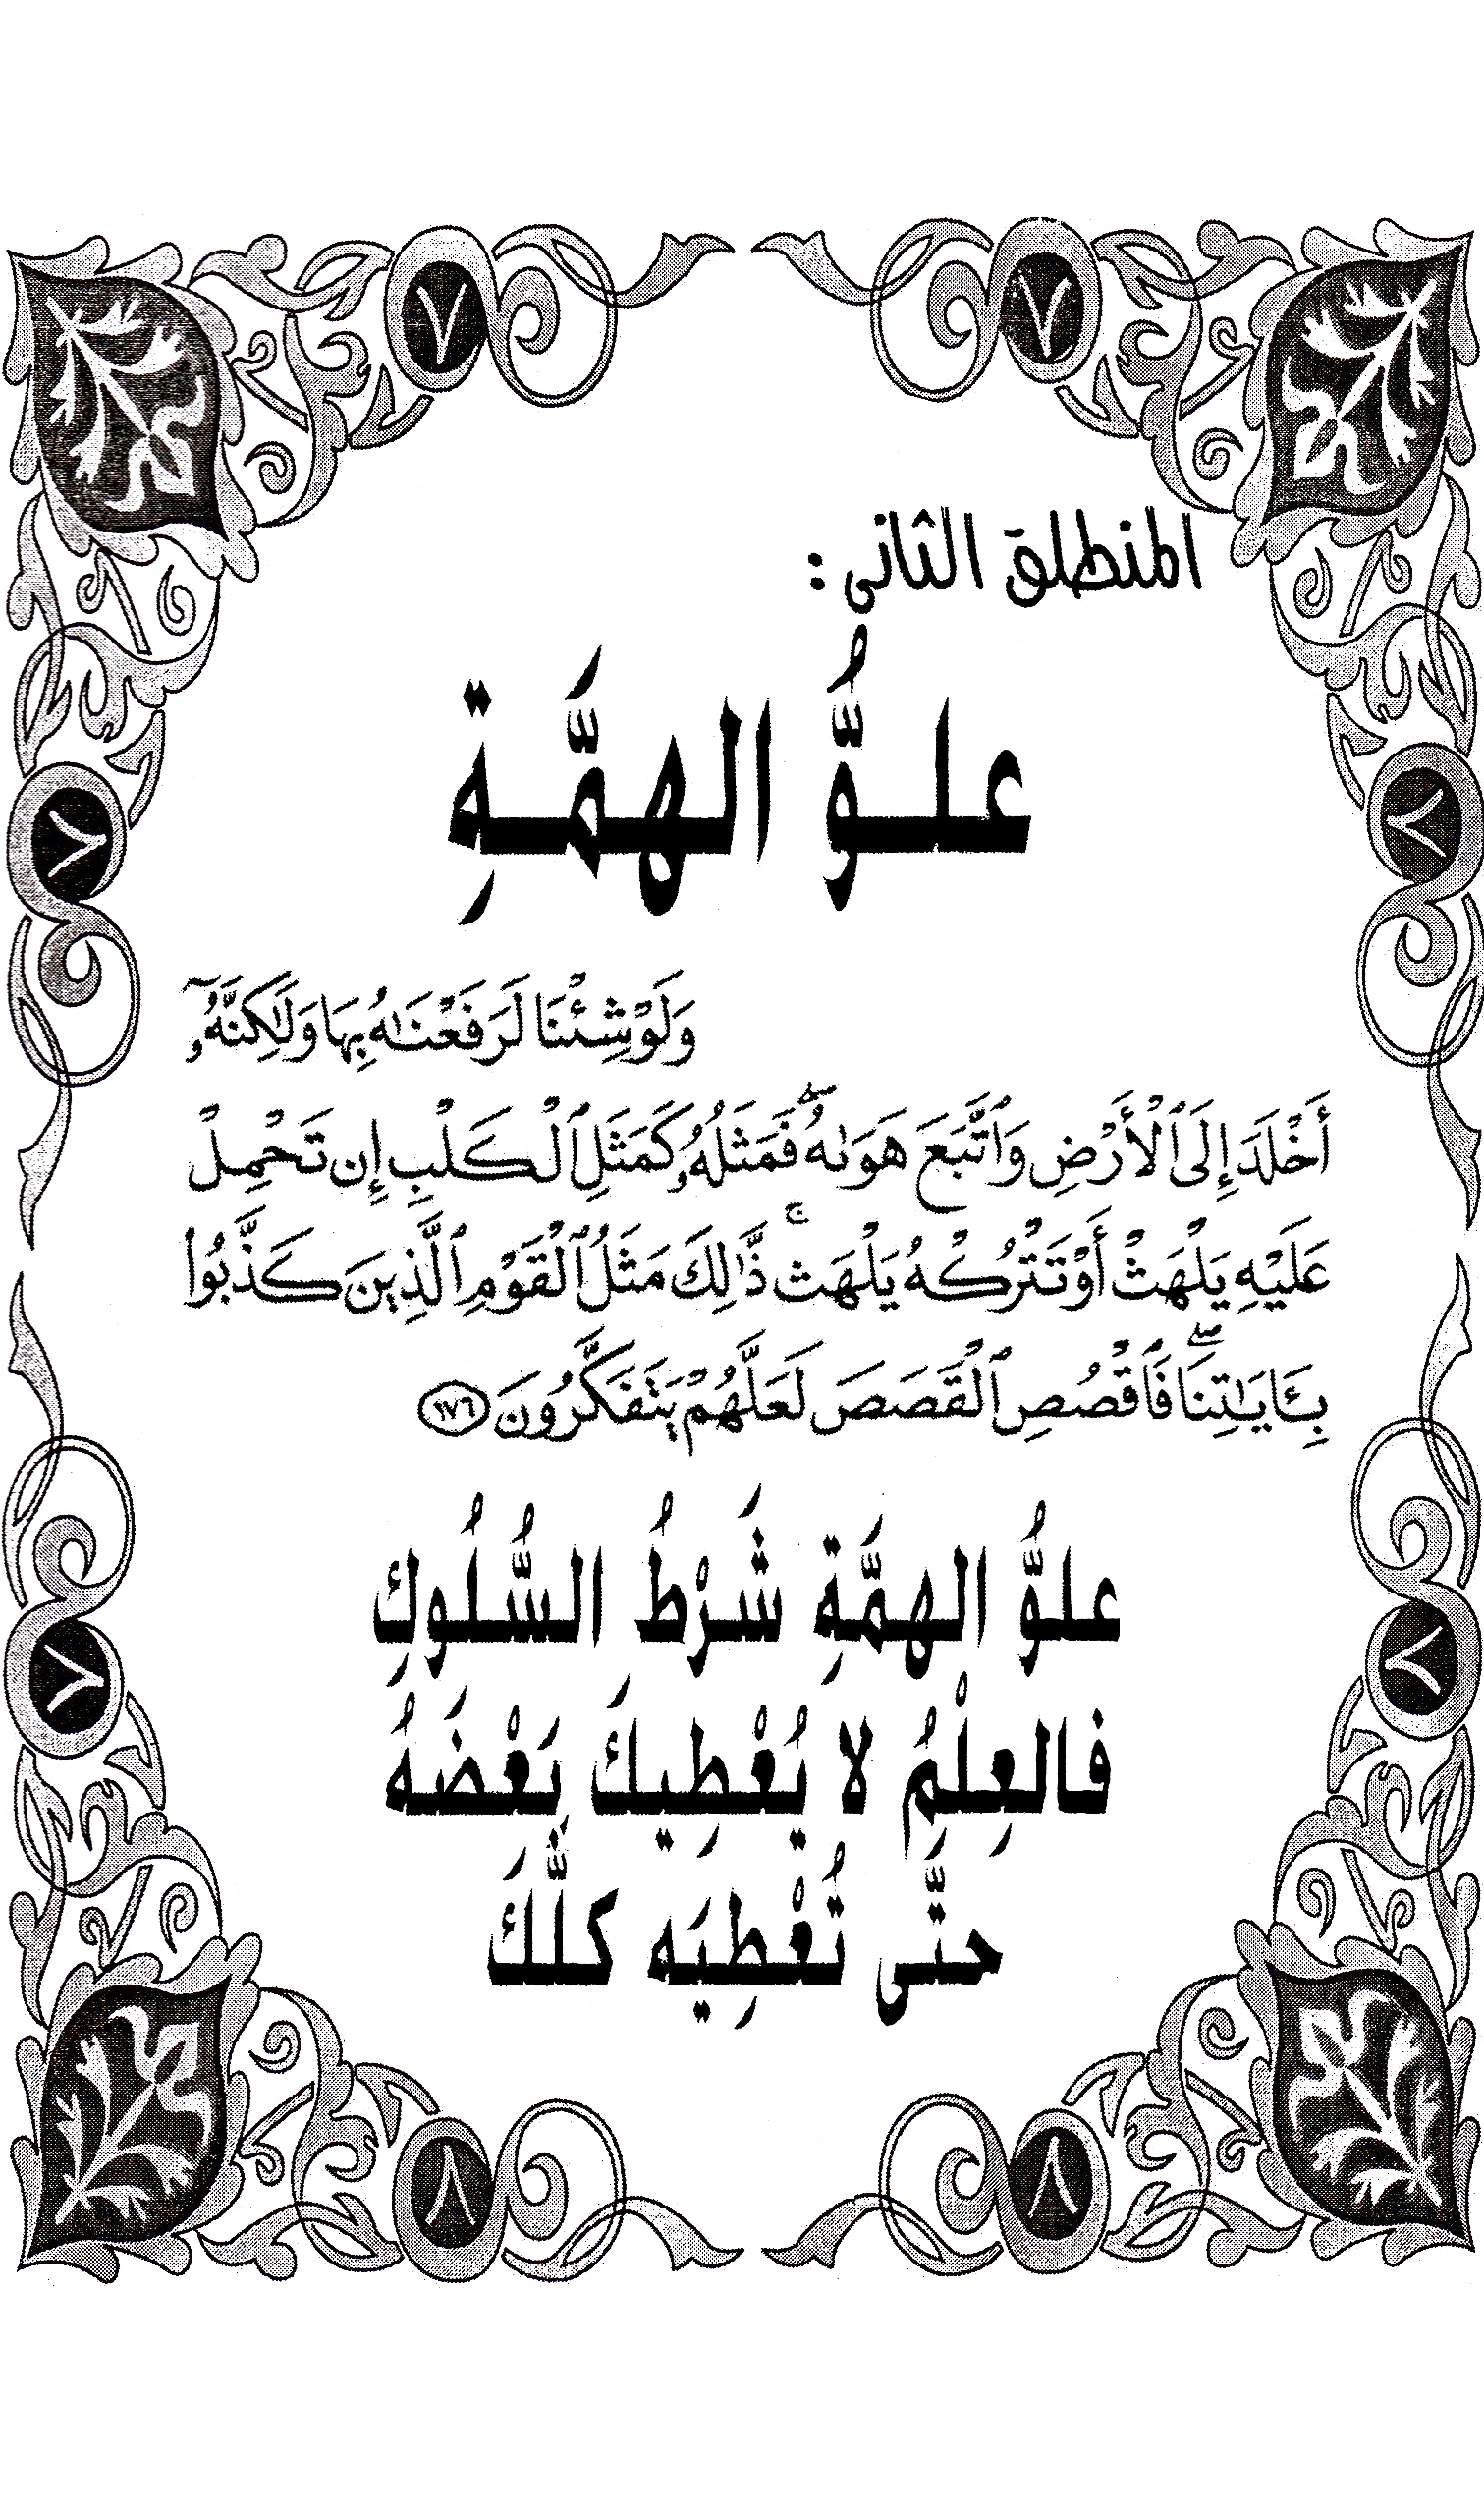 المنطلق الثانى :
علوُّ الهمَّةِ
وَلَوْ شِئْنَا لَرَفَعْنَٰهُ بِهَا وَلَٰكِنَّهُۥٓ
أَخْلَدَ إِلَى ٱلْأَرْضِ وَٱتَّبَعَ هَوَىٰهُ ۖ فَمَثَلُهُۥ كَمَثَلِ ٱلْكَلْبِ إِن تَحْمِلْ
عَلَيْهِ يَلْهَثْ أَوْ تَتْرُكْهُ يَلْهَث ۚ ذَّٰلِكَ مَثَلُ ٱلْقَوْمِ ٱلَّذِينَ كَذَّبُوا۟
بِـَٔايَٰتِنَا ۖ فَٱقْصُصِ ٱلْقَصَصَ لَعَلَّهُمْ يَتَفَكَّرُونَ ١٧٦
علوُّ الهمَّةِ شَرْطُ السُّلُوكِ
فالعِلْمُ لا يُعْطِيكَ بَعْضَهُ
حتَّى تُعْطِيَه كلَّكَ